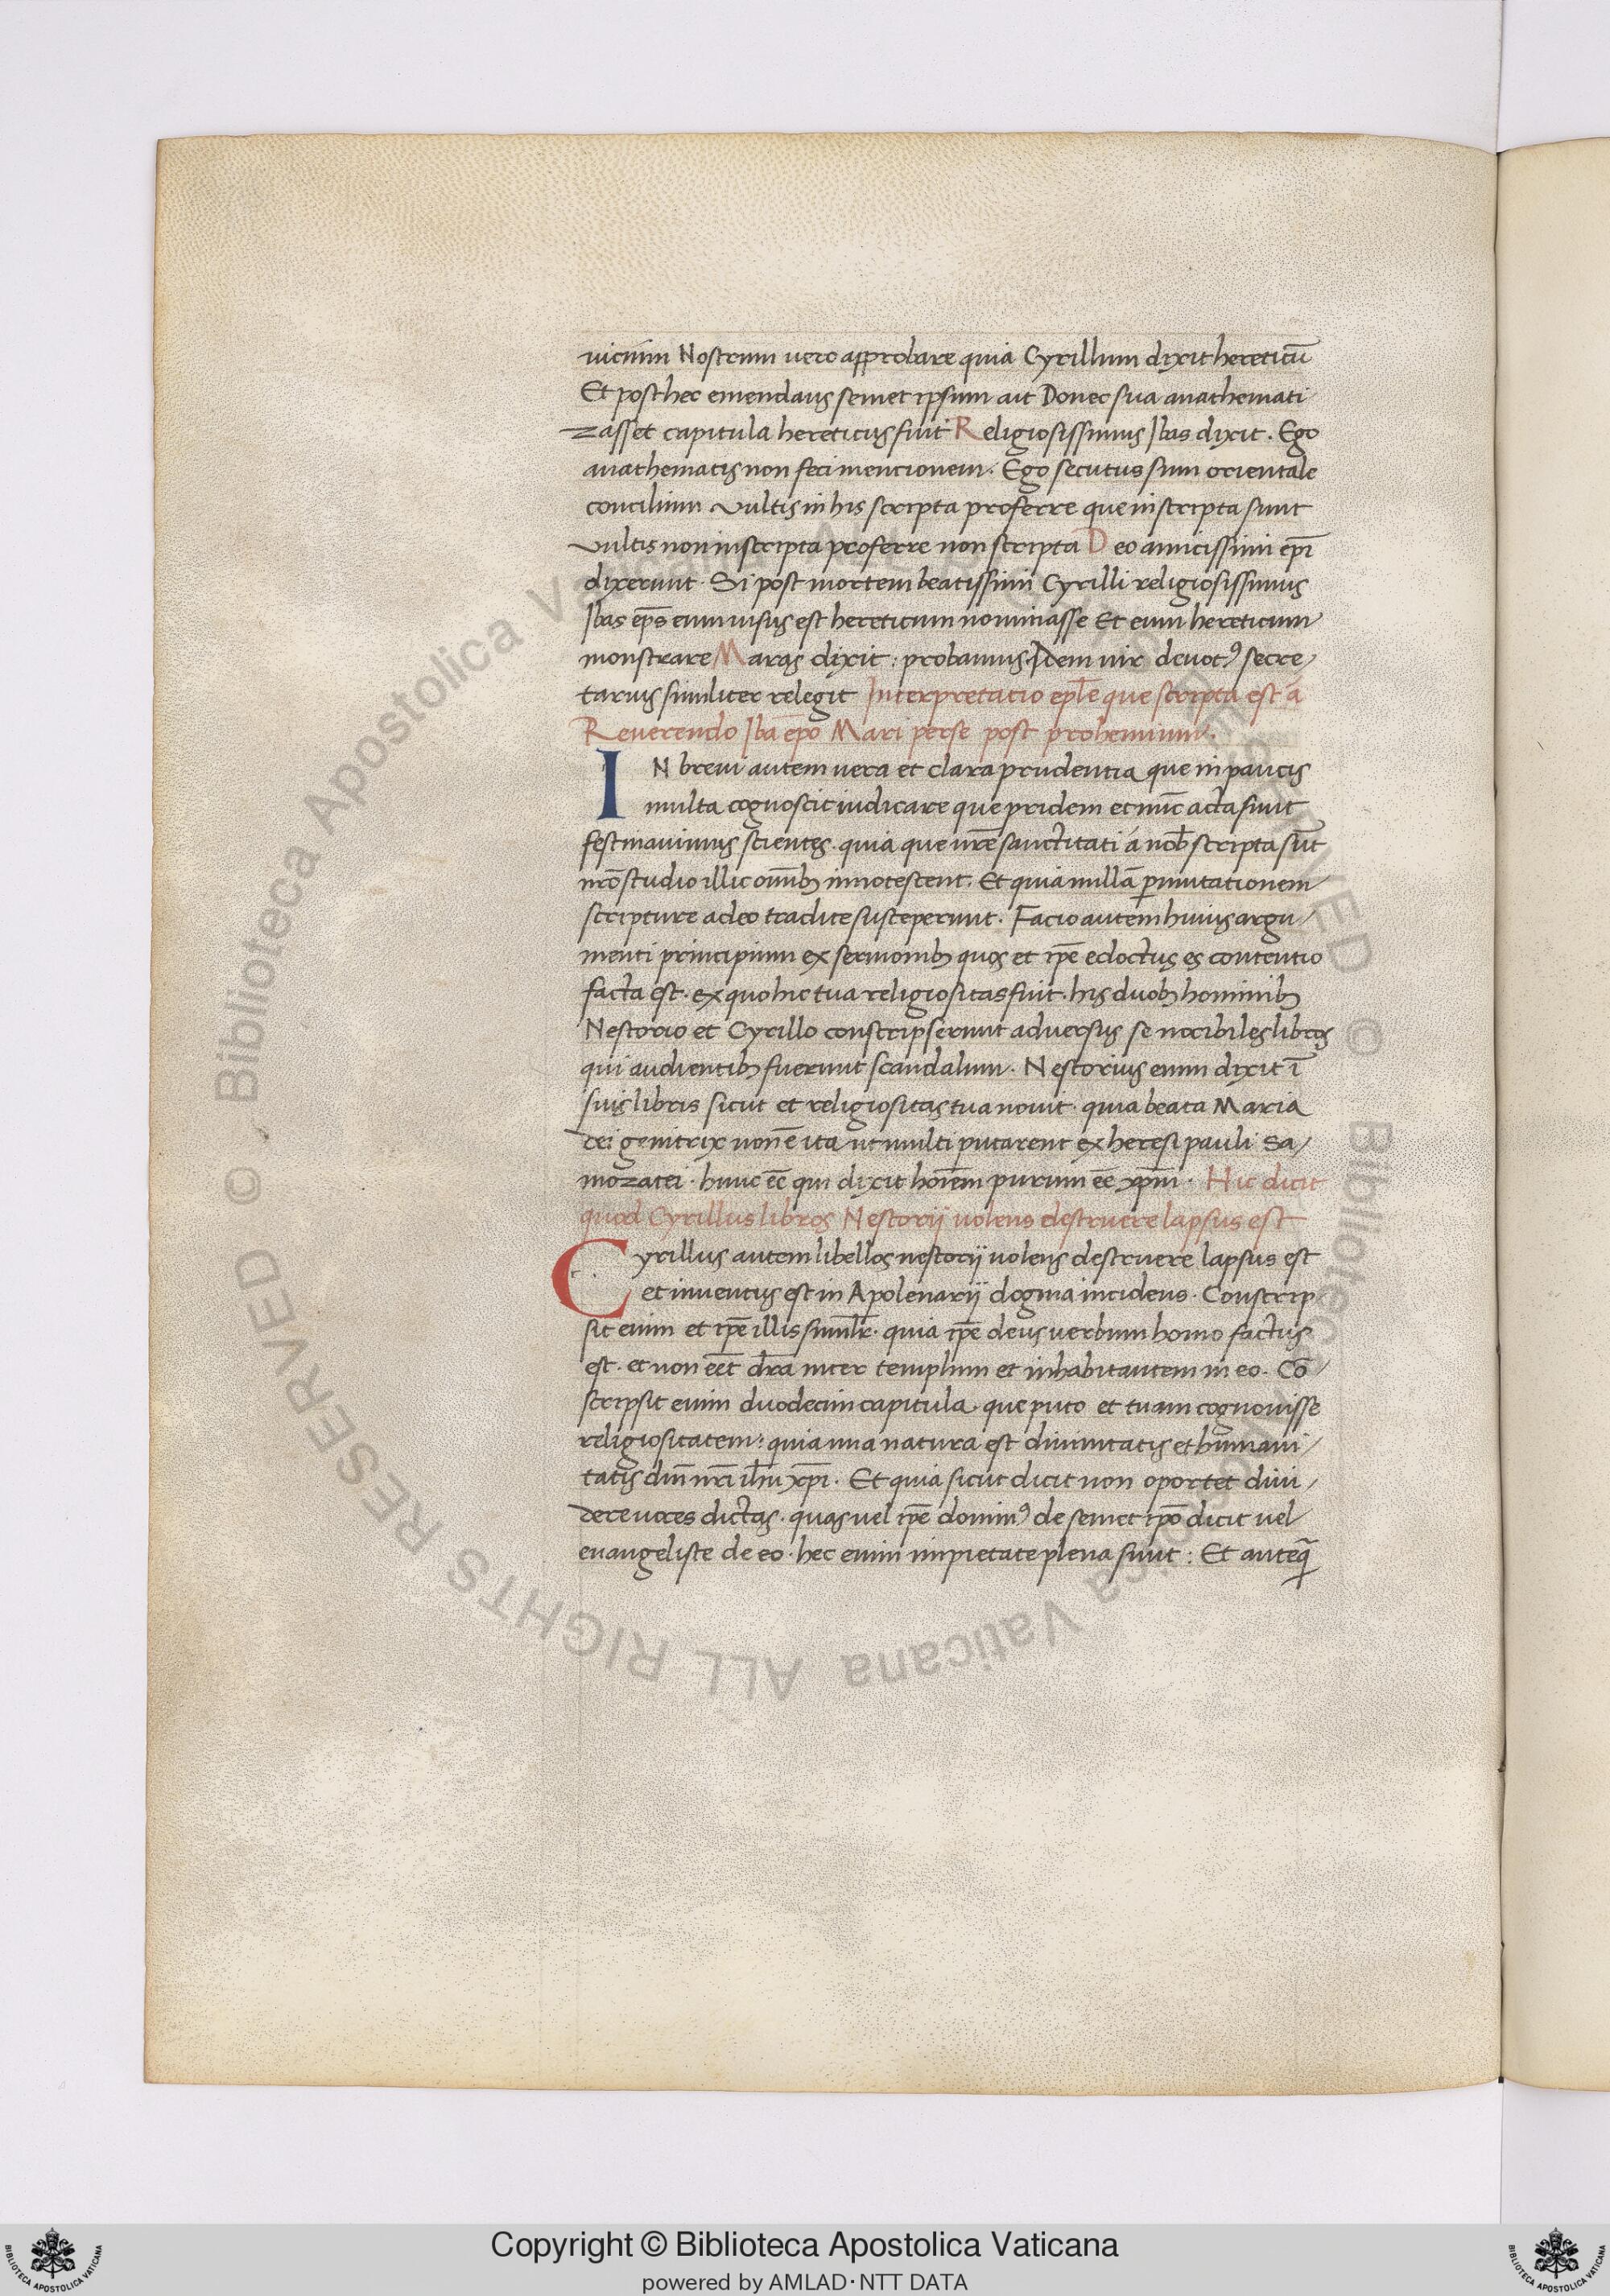 uicinim Nostrum uero approbare quia Cyrillum dixit hereticū
Et post hec emendans semet ipsum ait Donec sua anathemati
zasset capitula hereticus fuit Religiosissimus Ibas dixit. Ego
anathematis non feci mentionem. Ego secutus sum orientale
concilium Vultis in his scripta proferre que in scripta sunt
Vultis non in scripta proferre non scripta Deo amicissimi ep̄i
dixerunt. Si post mortem beatissimi Cyrilli religiosissimus
Ibas ep̄s eum uisus est hereticum nominasse Et eum hereticum
monstrare Maras dixit: probamus. Idem uir deuotꝰ secre/
tarius similiter relegit Interpretatio epl̄e que scripta est á
Reuerendo Iba ep̄o Mari perse post prohemium.
IN breui autem uera et clara prudentia que in paucis
multa cognoscit iudicare que pridem et nūc acta sunt
festinauimus scientes. quia que ur̄e sanctitati á nob̄ scripta sūt
nr̄o studio illic omīb; innotescent. Et quia nullā ꝑmutationem
scripture a deo tradite susceperunt. Facio autem huius argu/
menti principium ex sermonib; quos et ip̄e edoctus es contentio
facta est. ex quo hic tua religiositas fuit. his duob; hominib;
Nestorio et Cyrillo conscripserunt aduersus se nocibiles libros
qui audientib; fuerunt scandalum. Nestorius enim dixit ī
suis libris sicut et religiositas tua nouit. quia beata Maria
dei genitrix non ē ita ut multi putarent ex heresi pauli Sa/
mozatei. hunc eē qui dixit hoīem purum eē xp̄m. Hic dicit
quod Cyrillus libros Nestorij uolens destruere lapsus est
Cyrillus autem libellos nestorij uolens destruere lapsus est
et inuentus est in Apolenarij dogma incidens. Conscrip
sit enim et ip̄e illis simil̄r. quia ip̄e deus uerbum homo factus
est. et non eēt dr̄a inter templum et inhabitantem in eo. Cō/
scripsit enim duodecim capitula. que puto et tuam cognouisse
religiositatem: quia una natura est diuinitatis et humani/
tatis dn̄i nr̄i ih̄u xp̄i. Et quia sicut dicit non oportet diui/
dere uoces dictas. quas uel ip̄e dominꝰ de semet ip̄o dicit uel
euangeliste de eo. hec enim impietate plena sunt: Et anteq̄
Copyright © Biblioteca Apostolica Vaticana
powered by AMLAD·NTT DATA